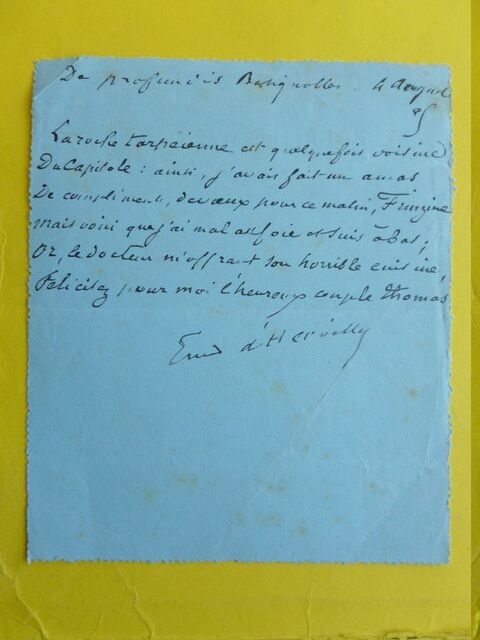 De profundis Batignolles. 4 August
95
La roche tarpéienne est quelquefois voisine
Du Capitole : ainsi, j'avais fait un amas
De compliments, de vœux pour ce matin,
Mais voici que j'ai mal au foie et suis à bas ;
Or, le docteur m'offrant son horrible cuisine,
Félicitez pour moi l'heureux couple Thomas
Ernest d'Hervilly